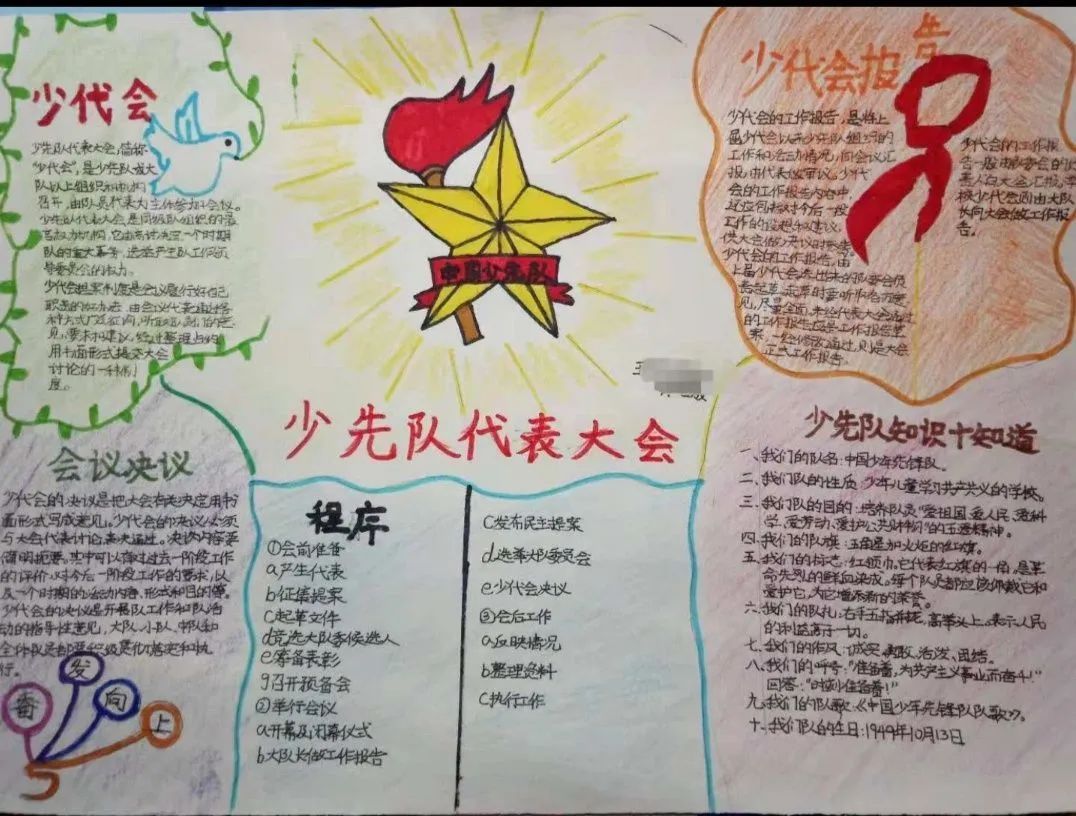 少代会
少先队代表大会,简称
“少代会”,是少先队大
队以上组织和机构
召开,由队员代表为主体参加会议。
少先队代表大会,是同级队组织的最
高权力机构,它由讨论决定一个时期
队的重大事务,选举产生队工作领
导委员会的权力。
少代会提案制度是会议履行好自己
职责的好办法,由会议代表通过各
种方式广泛征询,听取队员们的意
见、要求和建议,经过整理上的
用书面形式提交大会
讨论的一种制
度。
中国少先队
少先队代表大会
少代会报告
少代会的工作报告,是将上
届少代会以来少先队组织的
工作和活动情况,向会议汇
报,由代表议审议。少代
会的工作报告内容中
还应包括对今后一段
工作的设想和建议,
供大会做决议时参考。
少代会的工作报告,由
上届少代会选出来的队委会负
责起草,起草时要听取各方意
见,尽量全面,未经代表大会通过
的工作报告应是工作报告草
案,一经修改通过,则是大会
正式工作报告。
少代会的工作报
告一般由队委会的负
责人向大会汇报,学
校少代会则由大队
长向大会做工作报
告。
会议决议
少代会的决议是把大会有关决定用书
面形式写成意见。少代会的决议必须
与大会代表讨论,表决通过。决议内容要
简明扼要。其中可以有对过去一阶段工作
的评价,对今后一阶段工作的要求,以
及一个时期的活动内容、形式和目的等。
少代会的决议是开展队工作和队活
动的指导性意见,大队、小队、中队和
全体队员都要积极是化落实和执
行。
奋
发
向
上
程序
①会前准备
a产生代表
b征集提案
c起草文件
d竞选大队委候选人
e筹备表彰
g召开预备会
②举行会议
a开幕及闭幕仪式
b大队长做工作报告
c发布民主提案
d选举大队委员会
e少代会决议
③会后工作
a反映情况
b整理资料
c执行工作
少先队知识十知道
一、我们的队名:中国少年先锋队。
二、我们队的性质:少年儿童学习共产主义的学校。
三、我们队的目的:培养队员“爱祖国、爱人民、爱科
学、爱劳动、爱护公共财物”的五爱精神。
四、我们的队旗:五角星加火炬的红旗。
五、我们的标志:红领巾。它代表红旗的一角,是革
命先烈的鲜血染成。每个队员都应该佩戴它和
爱护它,为它增添新的荣誉。
六、我们的队礼:右手五指并拢,高举头上。表示人民
的利益高于一切。
七、我们的作风:诚实、勇敢、活泼、团结。
八、我们的呼号:“准备着,为共产主义事业而奋斗!”
回答:“时刻准备着!”
九、我们的队歌:《中国少年先锋队队歌》。
十、我们队的生日:1949年10月13日